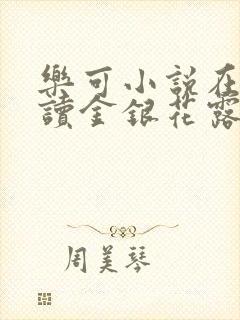 樂可小說在
讀金銀花露
周美琴